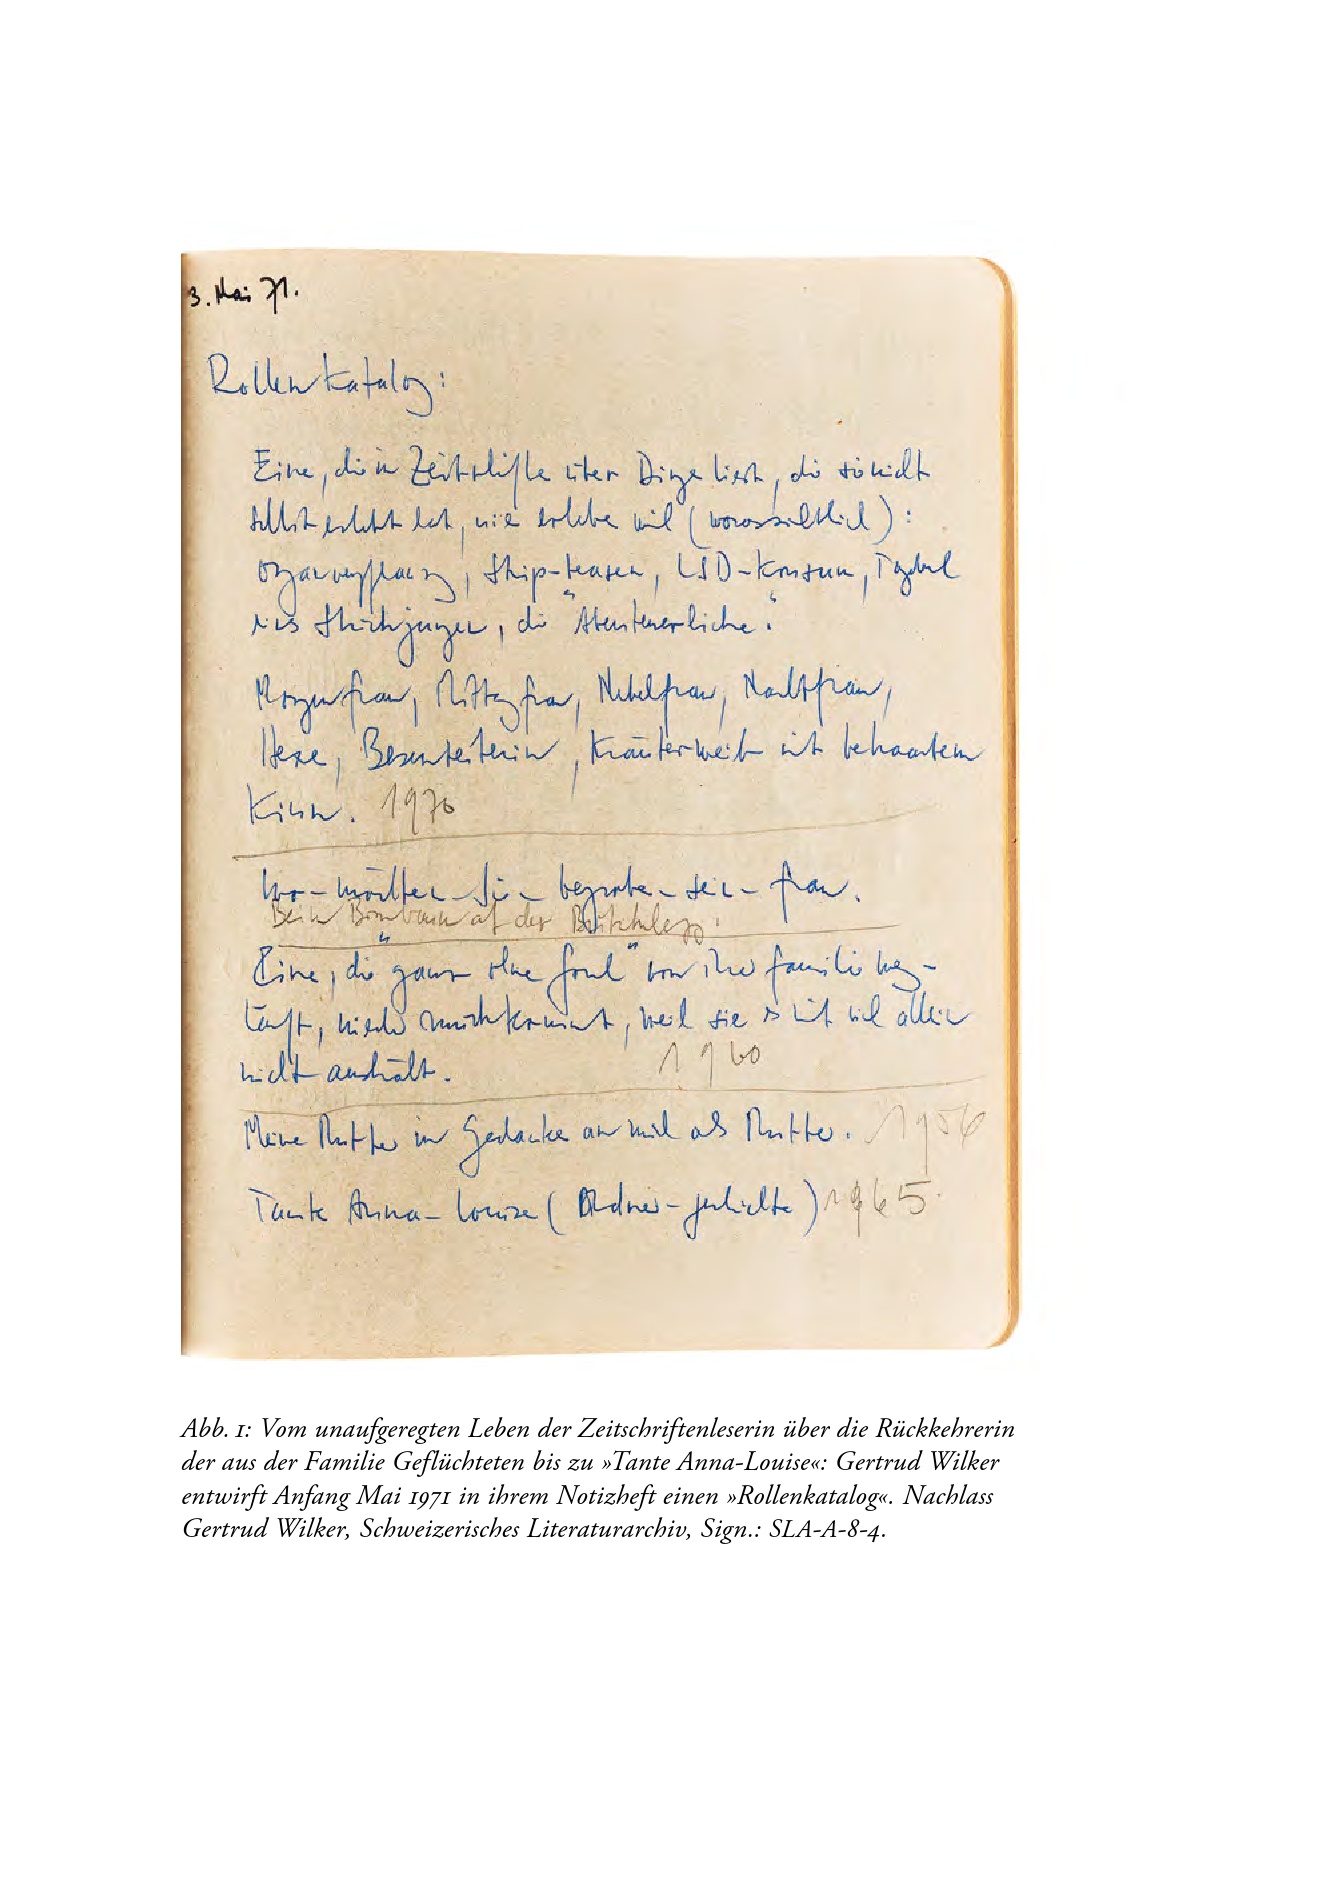 3. Mai 71.
Rollenkatalog:
Eine, die in Zeitschriften über Dinge liest, die sie nicht
selbst erlebt hat, nie erleben will (voraussichtlich):
Organverpflanzg, Strip-teasen, LSD-Konsum, Tagebuch
eines Strichjungen, die "Abenteuerliche".
Morgenfrau, Mittagfrau, Nebelfrau, Nachtfrau,
Hexe, Besenreiterin, Kräuterweib mit behaartem
Kinn. 1970
Wo-möchten-Sie-begraben-sein-frau.
Beim Birnbaum auf der
Eine, die "ganz ohne Grund" von ihrer Familie weg-
läuft, wieder zurückkommt, weil sie es mit sich allein
nicht aushält. 1960
Meine Mutter in Gedanken an mich als Mutter. 1956
Tante Anna-Louise (Ordner-geschichte) 1965
Abb. 1: Vom unaufgeregten Leben der Zeitschriftenleserin über die Rückkehrerin
der aus der Familie Geflüchteten bis zu »Tante Anna-Louise«: Gertrud Wilker
entwirft Anfang Mai 1971 in ihrem Notizheft einen »Rollenkatalog«. Nachlass
Gertrud Wilker, Schweizerisches Literaturarchiv, Sign.: SLA-A-8-4.